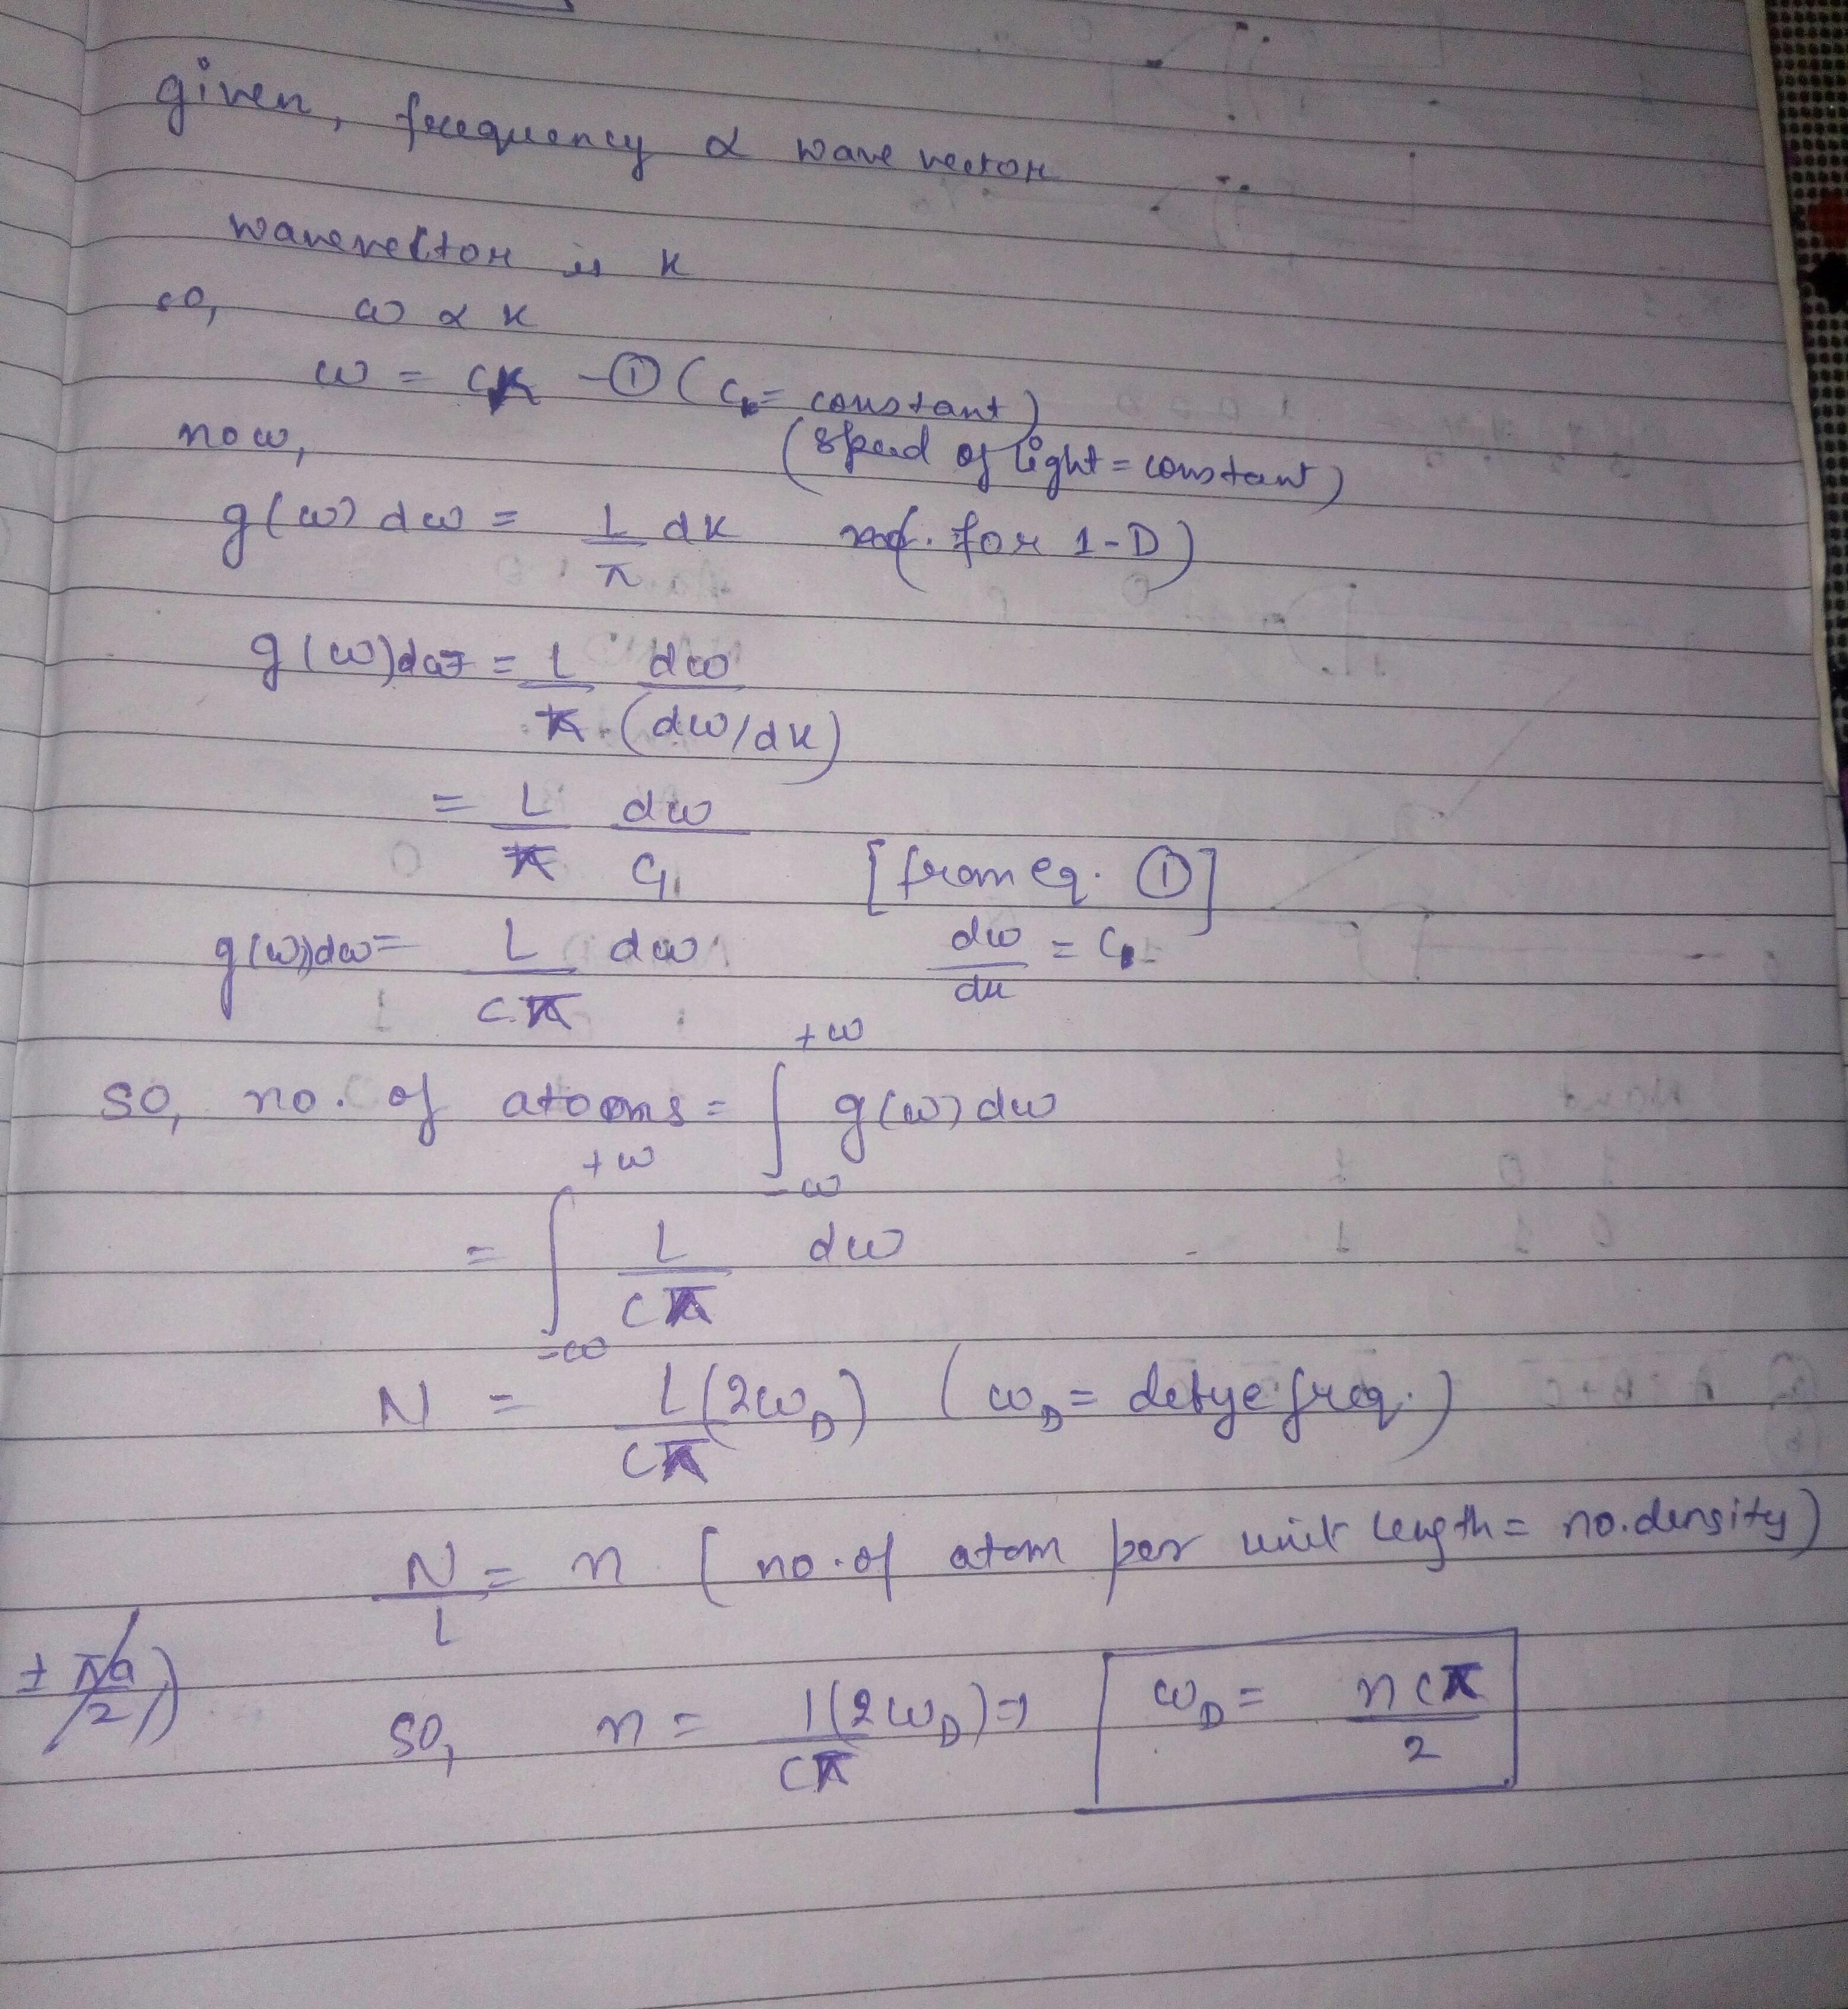 given, frequency α wave vector
wavevector is k
so, ω α k
ω = ck -① (c = constant)
now, (speed of light = constant)
g(ω) dω = L/π dk for 1-D)
g(ω)dω = L/π dω/(dω/dk)
= L/π dω/c [from eq. ①]
g(ω)dω = L/cπ dω dω/dk = c
so, no. of atoms = ∫_{-ω}^{+ω} g(ω) dω
= ∫_{-ω}^{+ω} L/cπ dω
N = L(2ω_D)/cπ (ω_D = debye freq.)
N/L = n (no. of atom per unit length = no. density)
± π/a/2)
so, n = 1(2ω_D)/cπ ⇒ ω_D = ncπ/2